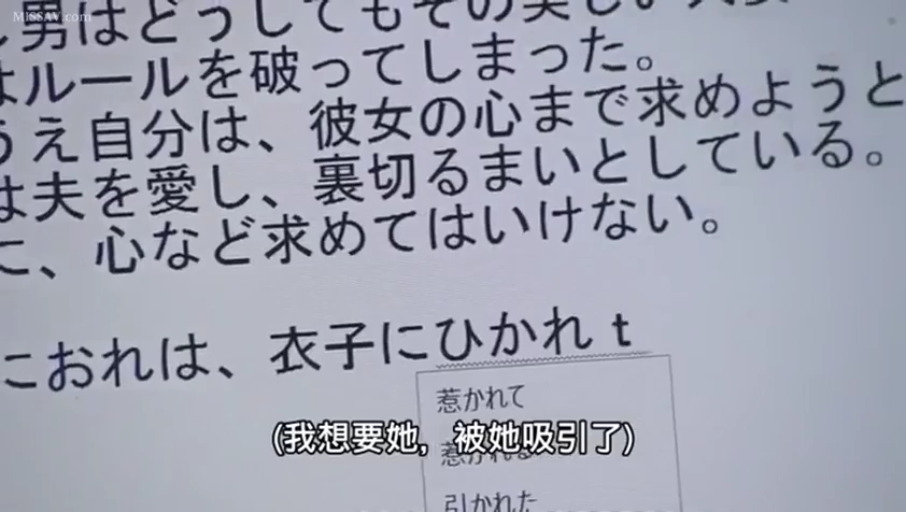 MISSAV.com
男はどうしてもその美しい
はルールを破ってしまった。
うえ自分は、彼女の心まで求めようと
は夫を愛し、裏切るまいとしている。
に、心など求めてはいけない。
におれは、衣子にひかれt
惹かれて
(我想要她，被她吸引了)
惹かれる
引かれた